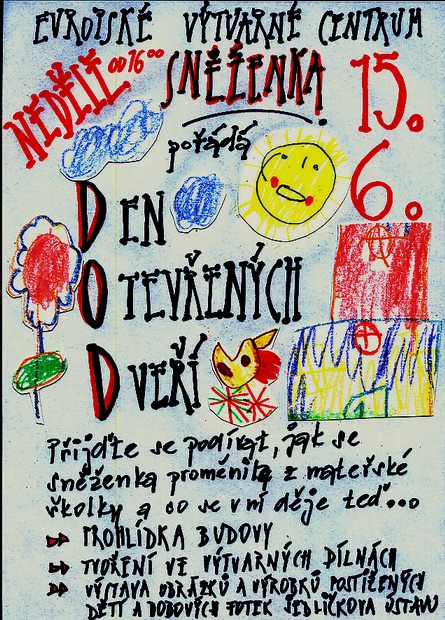 EVROPSKÉ VÝTVARNÉ CENTRUM
SNĚŽENKA
NEDĚLE OD 16 00
15.
6.
pořádá
DEN
OTEVŘENÝCH
DVEŘÍ
Přijďte se podívat, jak se
sněženka proměnila z mateřské
školky a co se v ní děje teď...
PROHLÍDKA BUDOVY
TVOŘENÍ VE VÝTVARNÝCH DÍLNÁCH
VÝSTAVA OBRÁZKŮ A VÝROBKŮ POSTIŽENÝCH
DĚTÍ A DOBOVÝCH FOTEK JEDLIČKOVA ÚSTAVU